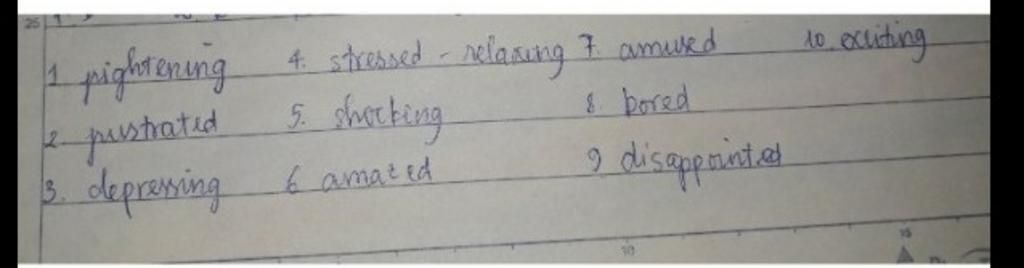 25
1 frightening 4. stressed - relaxing 7. amused 10. exciting
2. frustrated 5. shocking 8. bored
3. depressing 6 amazed 9 disappointed
10 15